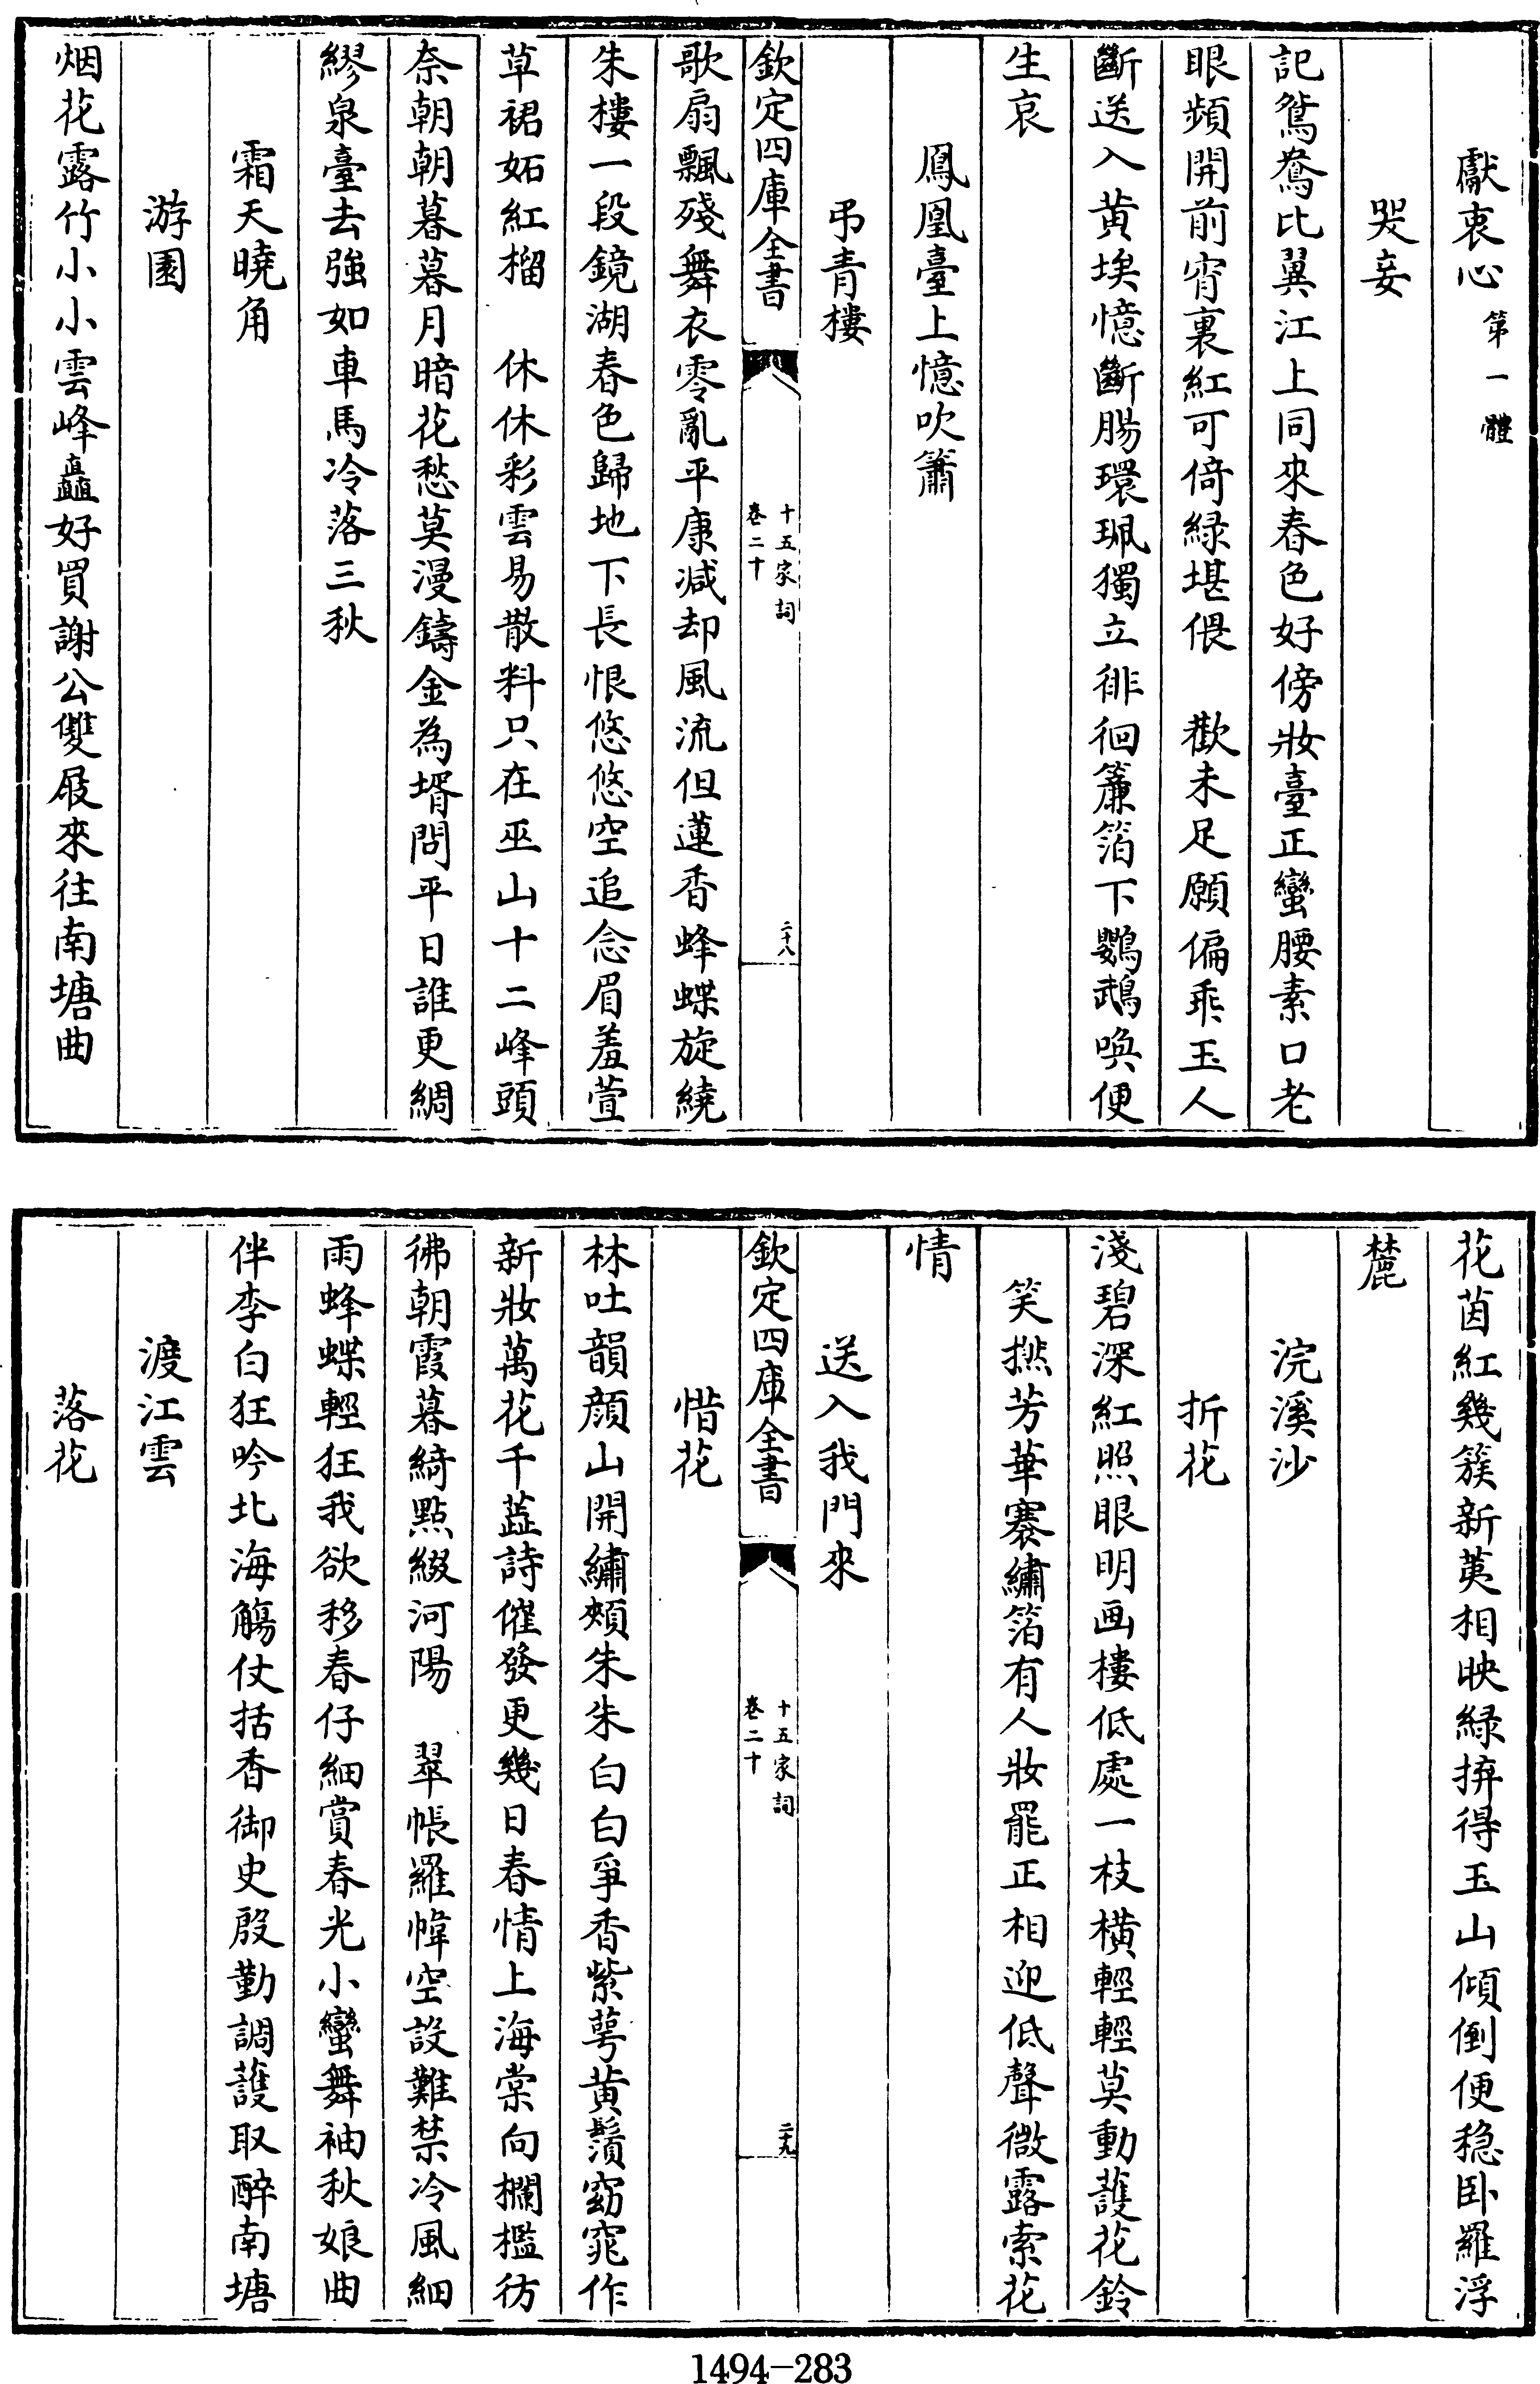 獻衷心第一體
哭妾
記鴛鴦比翼江上同來春色好傍妝臺正蠻腰素口老
眼頻開前宵裏紅可倚緑堪偎　歡未足願偏乖玉人
斷送入黄埃憶斷腸環珮獨立徘徊簾箔下鸚鵡喚便
生哀
鳳凰臺上憶吹簫
弔青樓
欽定四庫全書　十五家詞　卷二十　二十八
歌扇飄殘舞衣零亂平康减却風流但蓮香蜂蝶旋繞
朱樓一段鏡湖春色歸地下長恨悠悠空追念眉羞萱
草裙妬紅榴　休休彩雲易散料只在巫山十二峰頭
奈朝朝暮暮月暗花愁莫漫鑄金為壻問平日誰更綢
繆泉臺去強如車馬冷落三秋
霜天曉角
游園
烟花露竹小小雲峰矗好買謝公雙屐來往南塘曲
花茵紅幾簇新荑相映緑拚得玉山傾倒便穏卧羅浮
麓
浣溪沙
折花
淺碧深紅照眼明画樓低處一枝橫輕輕莫動護花鈴
笑撚芳華搴繡箔有人妝罷正相迎低聲微露索花
情
送入我門來
惜花
欽定四庫全書　十五家詞　卷二十　二十九
林吐韻顔山開繡頰朱朱白白爭香紫萼黄鬚窈窕作
新妝萬花千蕋詩催發更幾日春情上海棠向欄檻彷
彿朝霞暮綺點綴河陽　翠帳羅幃空設難禁冷風細
雨蜂蝶輕狂我欲移春仔細賞春光小蠻舞袖秋娘曲
伴李白狂吟北海觴仗括香御史殷勤調護取醉南塘
渡江雲
落花
1494—283